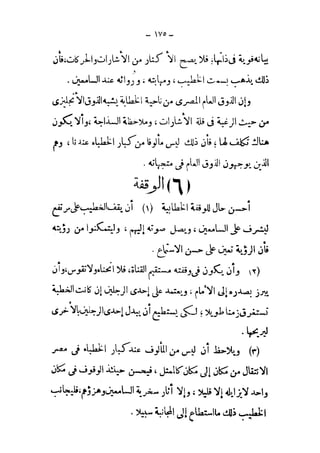 – ١٧٥ –
بيانه قوية فى ذاتها؛ فلا يصح الأ كثار من الأشارات والحركات، فأن
ذلك يذهب بسمت الخطيب، ومهابته، وروائه عند السامعين.
وإن الذوق العام المصرى من ناحية الخطابة يشبه الذوق الأنجليزى
من حيث الرغبة فى قلة الأشارات، وملاحظة السذاجة، وألا يكون
هنالك تكلف لها؛ فأن ذلك ليس مألوفا من كبار الخطباء عندنا، وهم
الذين يوجهون الذوق العام فى متجهاته.
(٦) الوقفة
أحسن حال للوقفة الخطابية (١) أن يقف الخطيب على مرتفع
ليشرف على السامعين، ويصل صوته إليهم، وليتمكنوا من رؤيته
فأن الرؤية تعين على حسن الاستماع.
(٢) وأن يكون فى وقفته مستقيم القناة، فلا انحناء ولا تقوس، وأن
يبرز بصدره إلى الأمام، ويعتمد على إحدى الرجلين إن كانت الخطبة
تستغرق زمنا طويلا؛ لكى يستطيع أن يبدل إحدى الرجلين بالأخرى
ليريحها.
(٣) ويلاحظ أن ليس من المألوف عند كبار الخطباء فى مصر
الانتقال من مكان إلى مكان كالممثل، فيحسن حينئذ الوقوف فى مكان
واحد لا يزايله إلا قليلا، وإلا أثار سخرية السامعين وهزؤهم، فليجانب
الخطيب ذلك ما استطاع إلى المجانبة سبيلا.